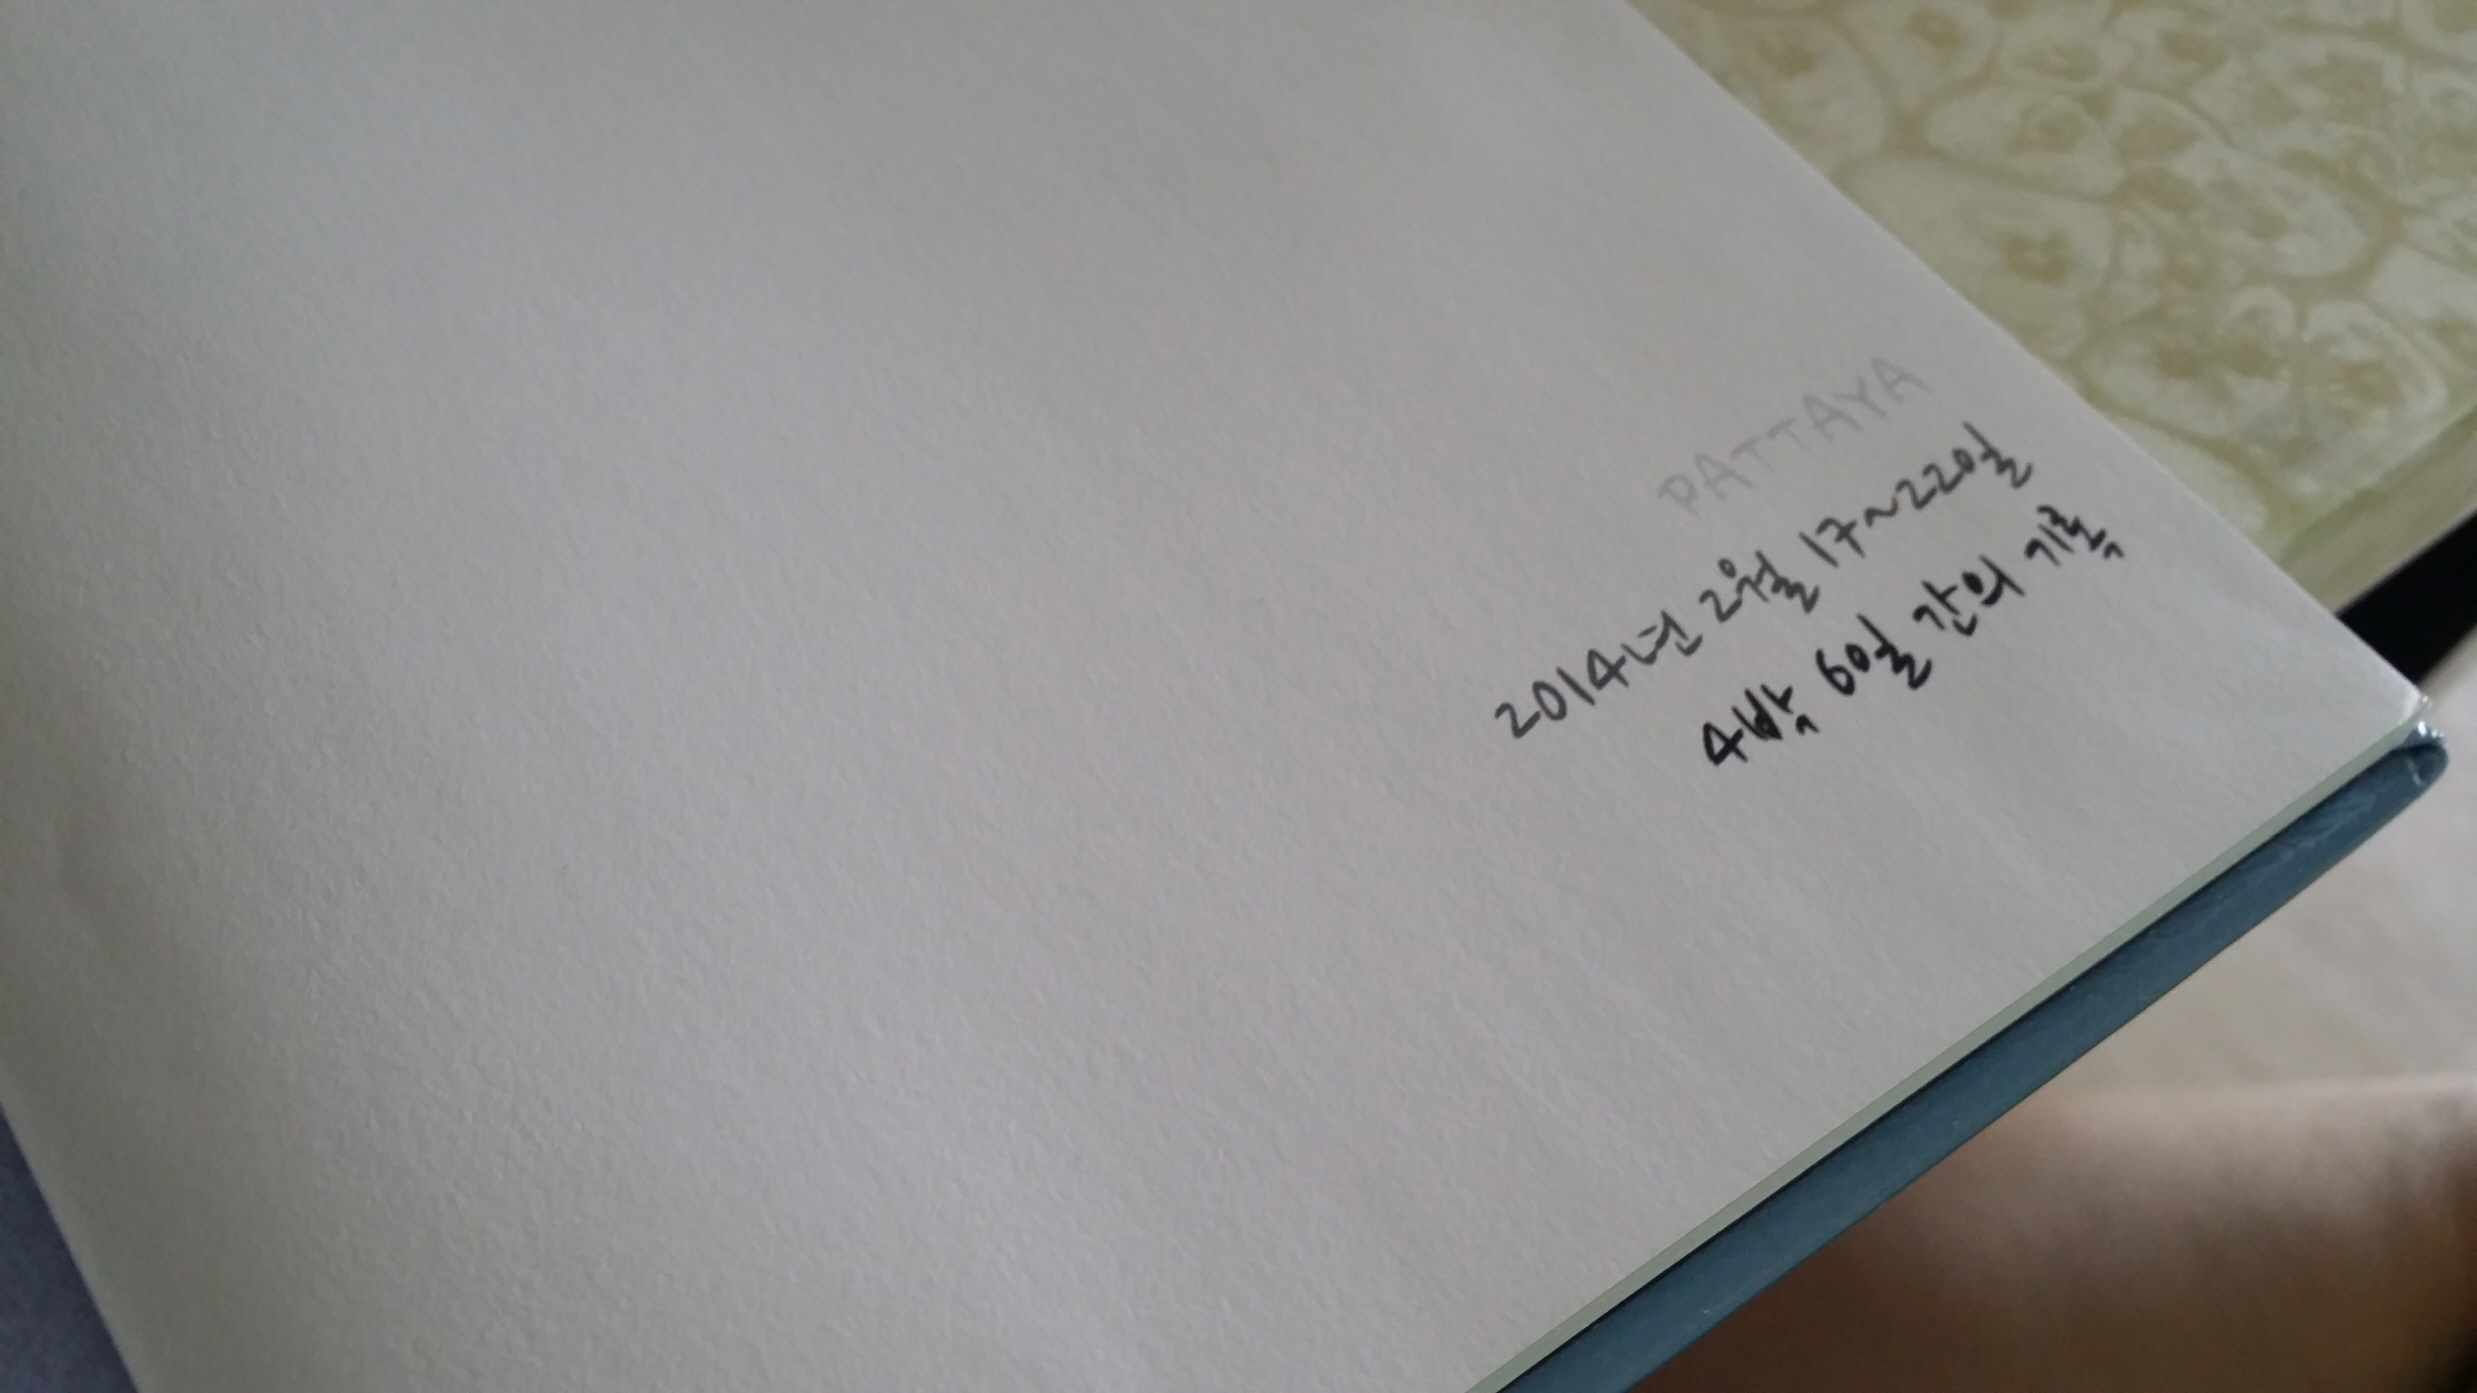 PATTAYA
2014년 2월 17~22일
4박 6일 간의 기록